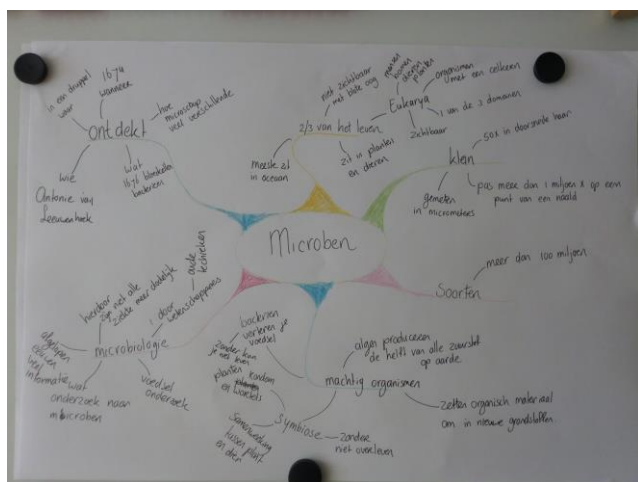 Microben
ontdekt
in een druppel
waar
1674
wanneer
hoe
microscoop
veel verschillende
wie
Antonie van
Leeuwenhoek
wat
1676 bloedcellen
bacterieen
2/3 van het leven
niet zichtbaar
met blote oog
meeste zit
in oceaan
zit in planten
en dieren
Eukarya
mensen
bomen
dieren
planten
organismen
met een celkern
1 van de 3 domeinen
zichtbaar
klein
50x in doorsnede haar
pas meer dan 1 miljoen x op een
punt van een naald
gemeten
in micrometers
Soorten
meer dan 100 miljoen
machtig organismen
bacterien
verteren je
voedsel
zonder kan
je niet leven
algen produceren
de helft van alle zuurstof
op aarde
zetten organisch materiaal
om in nieuwe grondstoffen
symbiose
planten rondom
en wortels
samenwerking
tussen plant
en dier
zonder
niet overleven
microbiologie
hierdoor
zijn niet alle
ziektes meer dodelijk
door
wetenschappers
oude
technieken
afgelopen
eeuwen
veel
informatie
wat
onderzoek naar
microben
voedsel
onderzoek